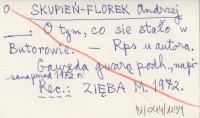 o SKUPIEŃ-FLOREK Andrzej
—: O tym, co się stało w
Butorowie. — Rps u autora.
Gawęda gwarą podh., napi-
sana przed 1972 r.
Rec.: ZIĘBA M. 1972.